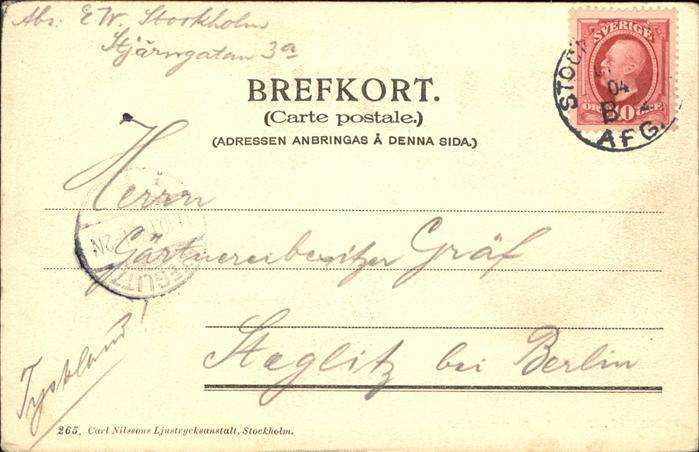 Abs: E W. Stockholm
Stjärngatan 3a
SVERIGE
10
STOCK
04
B
AFG.
BREFKORT.
(Carte postale.)
(ADRESSEN ANBRINGAS Å DENNA SIDA.)
Herrn
Gärtnereibesitzer Gräf
Steglitz bei Berlin
Tyskland!
265. Carl Nilssons Ljustrycksanstalt, Stockholm.